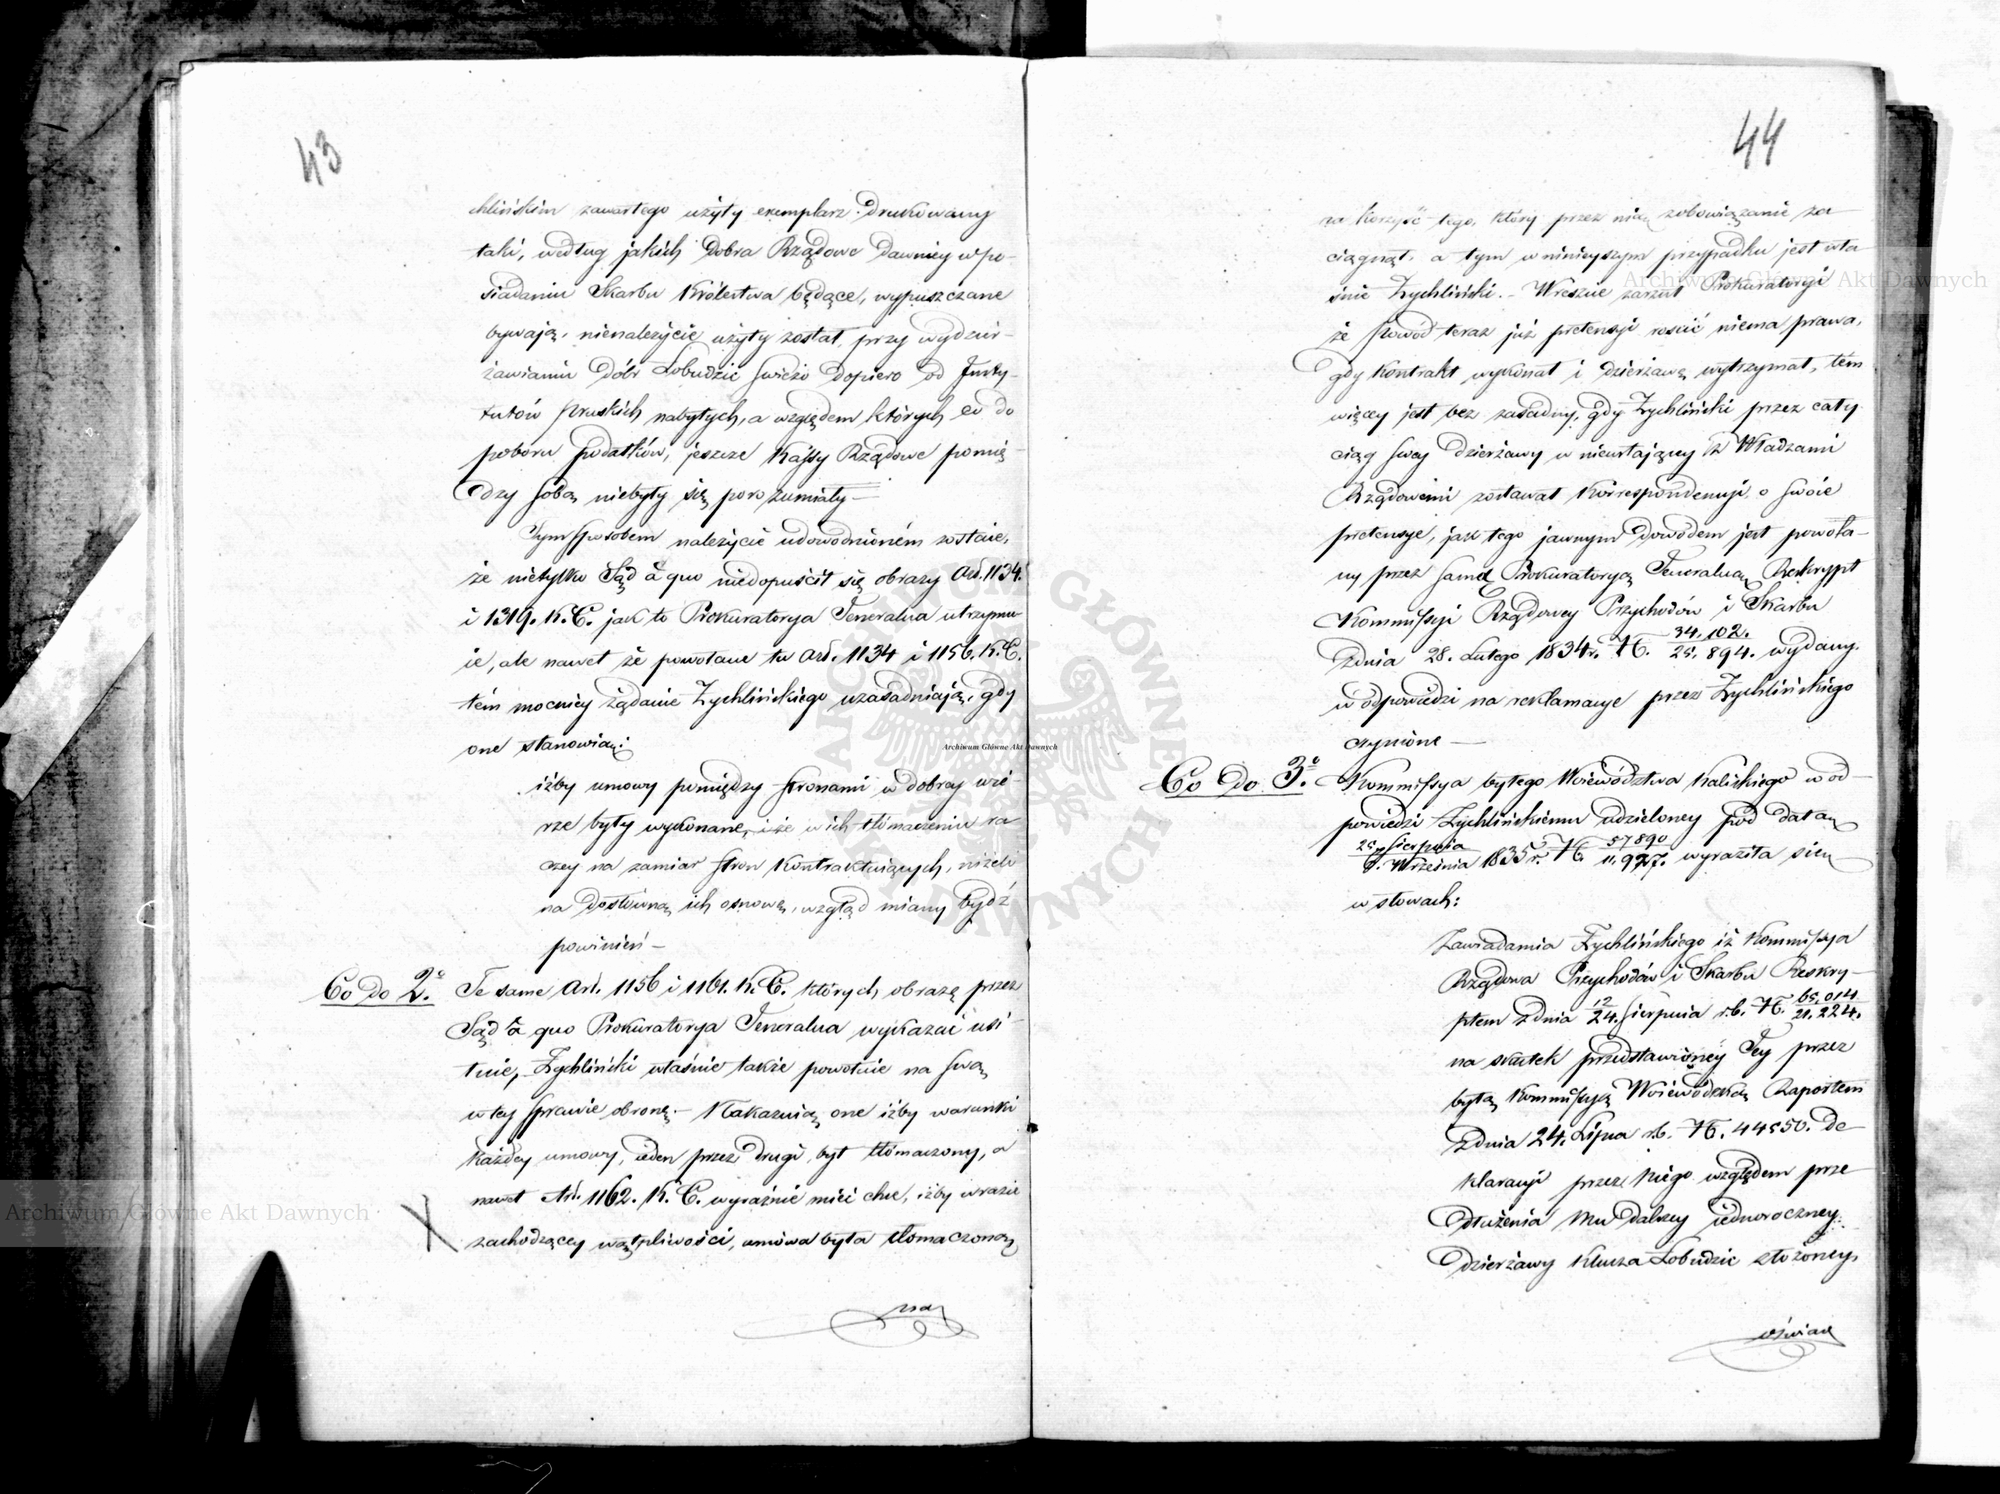 43
chlińskim zawartego użyty exemplarz drukowany
taki, według jakich Dobra Rządowe dawniey w po-
siadaniu Skarbu Królestwa będące, wypuszczane
bywają, nienależycie użyty został, przy wydzier-
żawianiu dóbr Łobudzic świeżo dopiero od Insty-
tutów pruskich nabytych, a względem których co do
poboru podatków, jeszcze Kassy Rządowe pomię-
dzy sobą niebyły się porozumiały —
Tym sposobem należycie udowodnioném zostaie,
że nietylko Sąd à quo niedopuścił się obrazy Art. 1134.
i 1319. K. C. jak to Prokuratorya Jeneralna utrzymu
ie, ale nawet że powołane tu Art. 1134 i 1156. K. C.
tém mocniey żądanie Żychlińskiego uzasadniają, gdy
one stanowią:
iżby umowy pomiędzy stronami w dobrey wie-
rze były wykonane, i że w ich tłómaczeniu ra
czey na zamiar stron kontraktuiących, niżeli
na dosłowną ich osnowę, wzgląd miany bydź
powinien —
Co do 2º. Te same Art. 1156 i 1161. K. C. których obrazę przez
Sąd à quo Prokuratorya Jeneralna wykazać usi-
łuie, Żychliński właśnie także powołuie na swą
w tey sprawie obronę. — Nakazuią one iżby warunki
każdey umowy, ieden przez drugi był tłómaczony, a
nawet Art. 1162. K. C. wyraźnie mieć chce, iżby w razie
zachodzącey wątpliwości, umowa była tłomaczoną
na
44
na korzyść tego, który przez nią zobowiązanie za
ciągnął, a tym w ninieyszym przypadku jest wła
śnie Żychliński. — Wreszcie zarzut Prokuratoryi
że powód teraz już pretensyi rościć niema prawa,
gdy kontrakt wykonał i dzierżawę wytrzymał, tém
więcey jest bez zasadny, gdy Żychliński przez cały
ciąg swey dzierżawy w nieustaiącey z Władzami
Rządowemi zostawał korrespondencyi o swoie
pretensye, jak tego jawnym dowodem jest powoła-
ny przez samą Prokuratoryą Jeneralną Reskrypt
Kommissyi Rządowey Przychodów i Skarbu
z dnia 28. Lutego 1834 r. N. 34,102./25,894. wydany
w odpowiedzi na reklamacye przez Żychlińskiego
czynione —
Co do 3º. Kommissya byłego Województwa Kaliskiego w od-
powiedzi Żychlińskiemu udzieloney pod datą
25 Sierpnia/6. Września 1835 r. N. 57890/11,977. wyraziła się
w słowach:
Zawiadamia Żychlińskiego iż Kommissya
Rządowa Przychodów i Skarbu Reskry-
ptem z dnia 12/24. Sierpnia r. b. N. 65,014/21,224.
na skutek przedstawioney Jey przez
byłą Kommissyą Woiewódzką Raportem
z dnia 24. Lipca r. b. N. 44550. de-
klaracyi przez niego względem prze
dłużenia mu dalszey iednoroczney
dzierżawy Klucza Łobudzic złożoney,
oświad
Archiwum Główne Akt Dawnych
Archiwum Główne Akt Dawnych
Archiwum Główne Akt Dawnych
ARCHIWUM GŁÓWNE AKT DAWNYCH